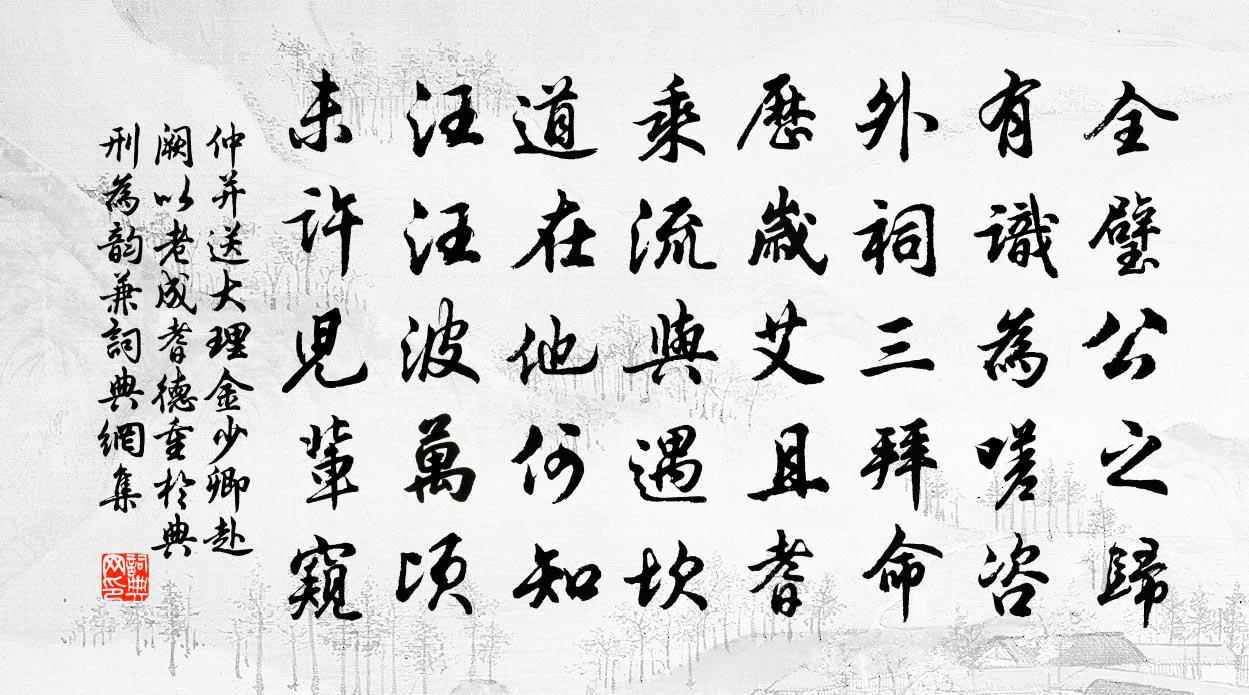 全璧公之歸
有識為嗟咨
外祠三拜命
歷歲艾且耆
乘流與遇坎
道在他何知
汪汪波萬頃
未許兒輩窺
仲并送大理金少卿赴
闕以老成耆德重於典
刑為韵兼詞典網集
詞典
网印